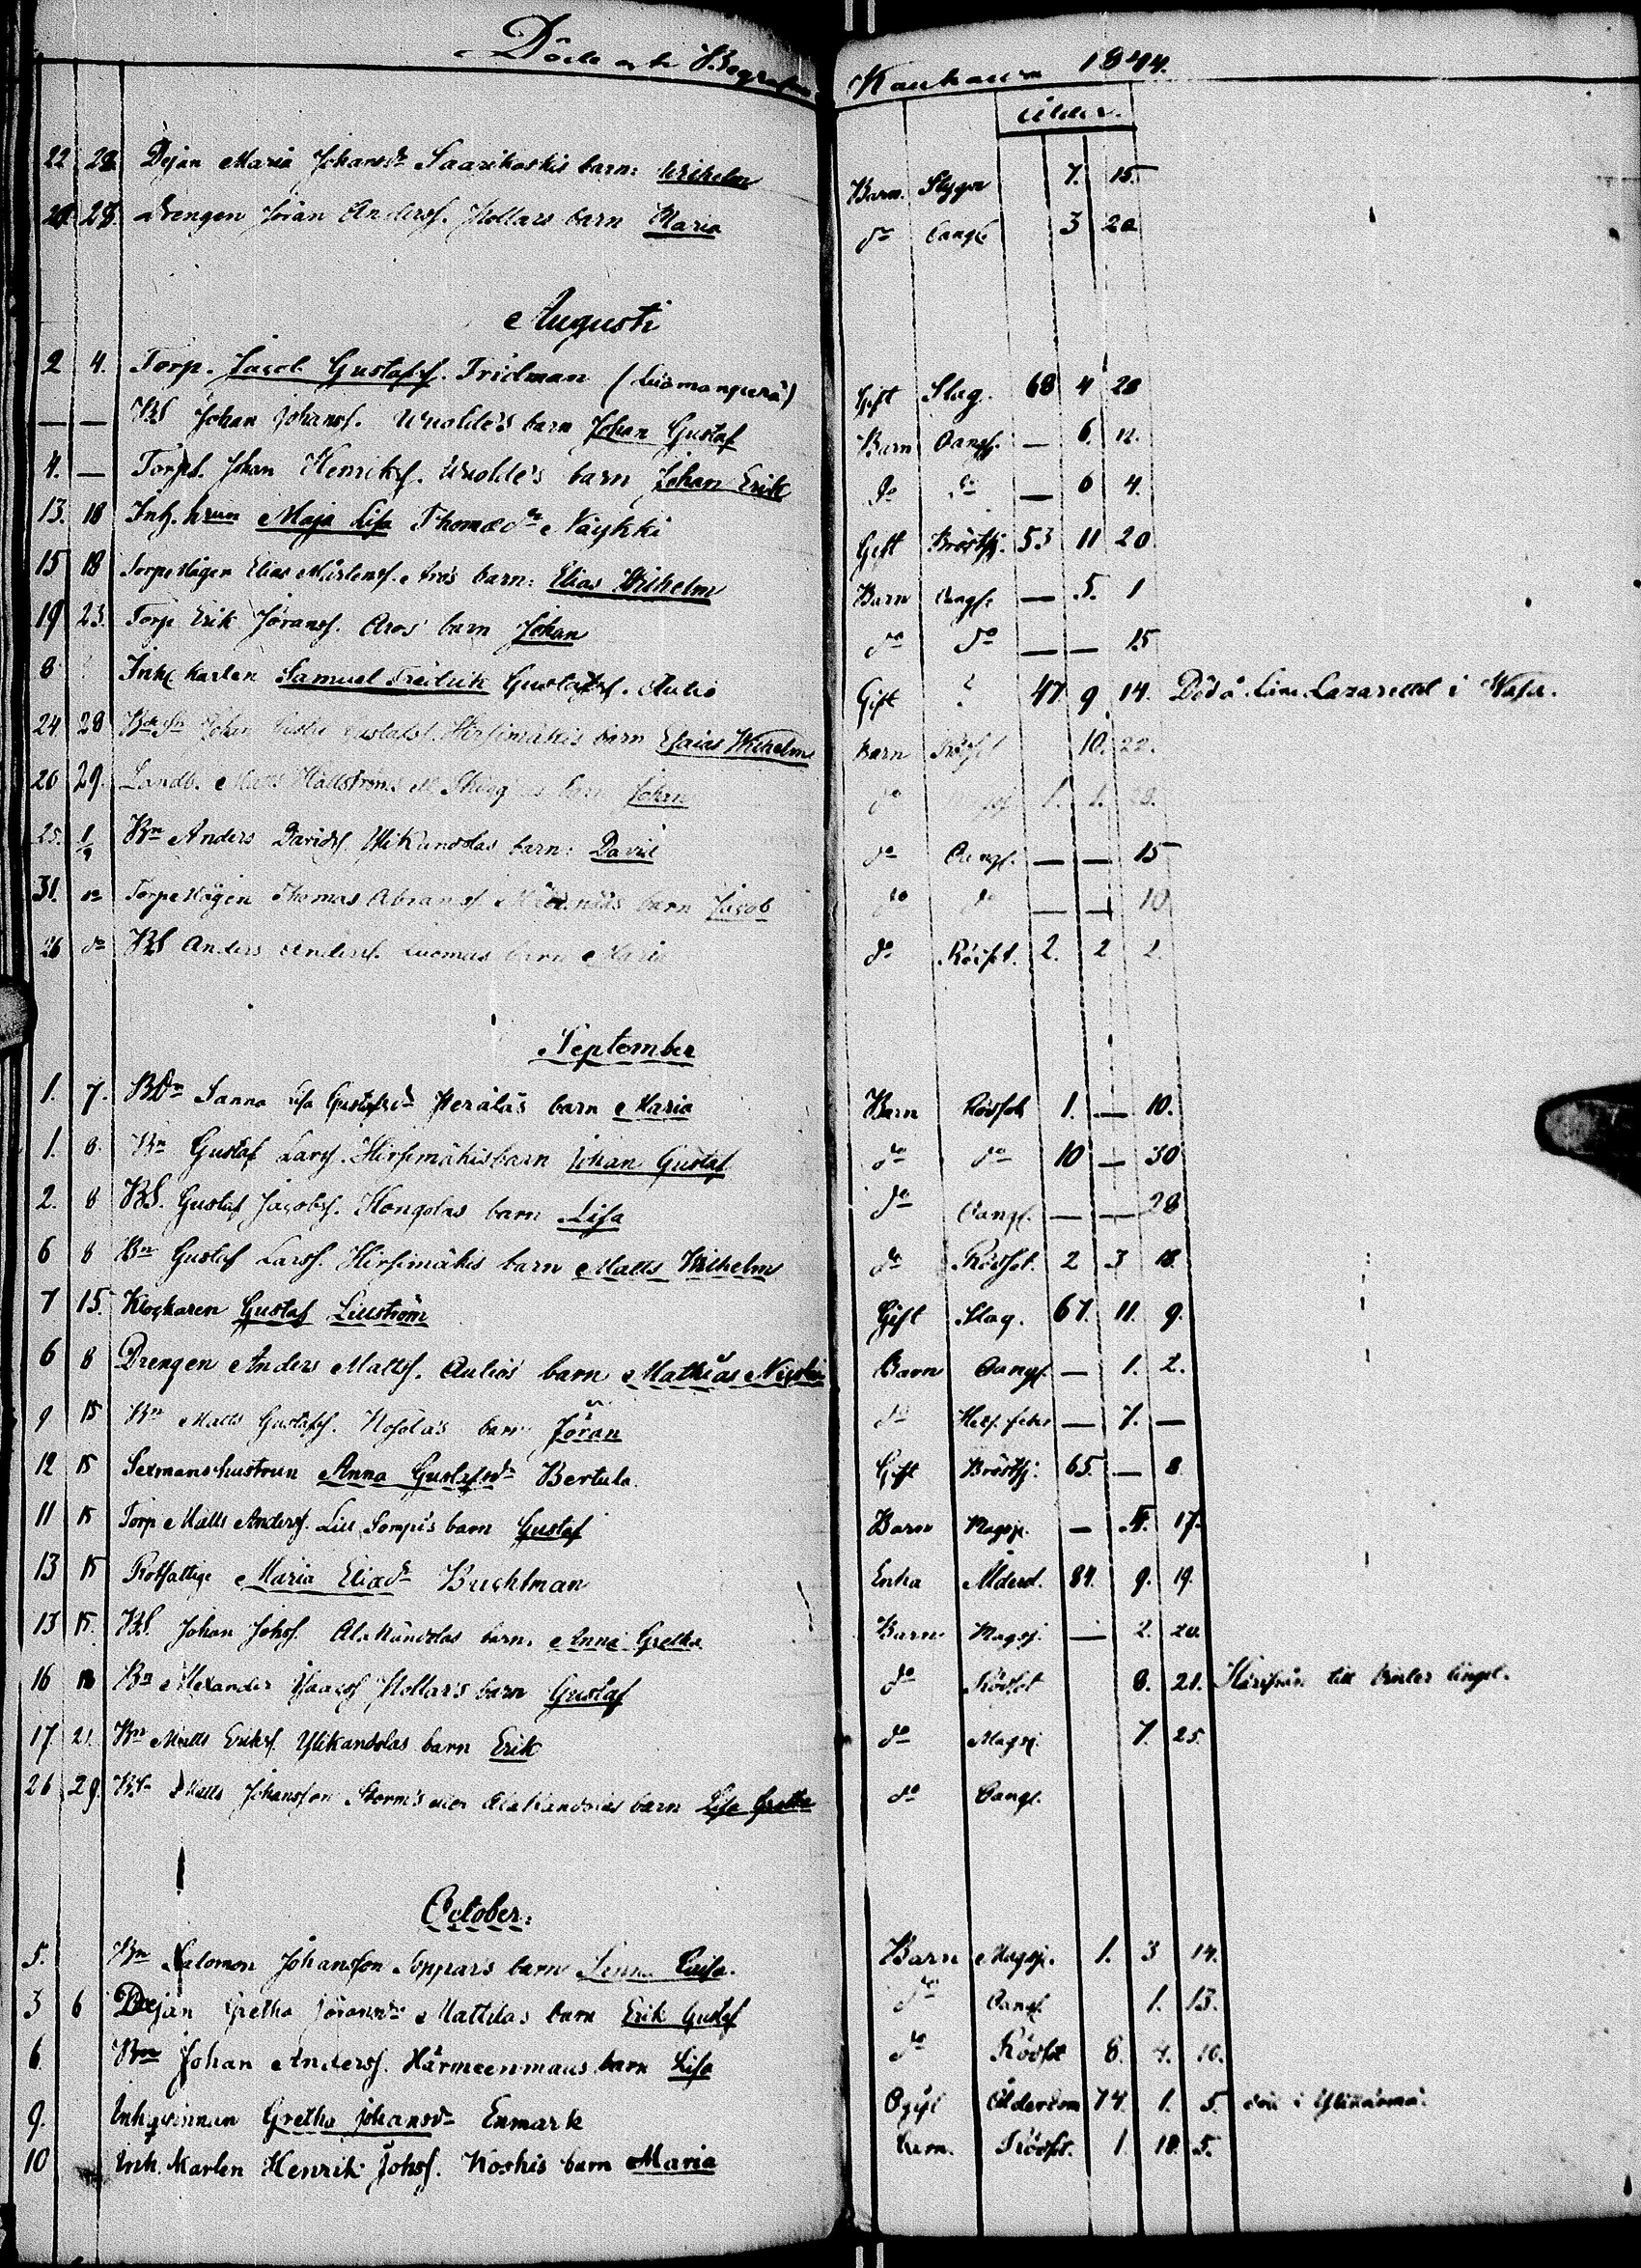 Döde och Begrafne Kauhava 1844.
Ålder.
22 28 Dejan Maria Johansdr Saarikoskis barn: Wilhelm Barn. Slygn 7. 15.
28. Drengen Jöran Andersf. Hollars barn Maria do Oangf. 3 20
Augusti
2 4. Torp. Jacob Gustafsf. Fridman (Luomanperä) Gift Slag. 68 4 28
— — BS Johan Johansf. Wuolde's barn Johan Gustaf Barn Oangf. — 6. 12.
4. — Torp. Johan Henriksf. Wuolde's barn Johan Erik do do — 6 4.
13. 18 Inh. hrun Maja Lisa Thomædr Näykki Gift Bröstsj. 53 11 20
15 18 Torpemågen Elias Mårtensf. Aros barn: Elias Wilhelm Barn Oangf. — 5. 1
19 23. Torp Erik Jöransf. Aros barn Johan do do — — 15
8 Inh karlen Samuel Fredrik Gustafsf. Aulio Gift ? 47. 9 14. Död å Läns Lazarettet i Wasa.
24 28 Johan Gustafsf. Hirsimäkis barn Esaias Wilhelm Barn Rödsot 10. 22.
26 29. Landb. Matts Hallströms barn Johan do 1. 1.
25. 1/9 Bn Anders Davidsf. Ylikandolas barn: David do Oangf. — — 15
31. do Torpemågen Thomas Abramsf. barn Jacob do do — — 10
26 do BS Anders Andersf. Luomas barn Maria do Rödsot. 2. 2 2.
September
1. 7. BDn Sanna Lisa Gustafsdr Peräläs barn Maria Barn Rödsot 1. — 10.
1. 8. Bn Gustaf Larsf. Hirsimäkis barn Johan Gustaf do do 10 — 30
2. 8 BS. Gustaf Jacobsf. Kongolas barn Lisa do Oangf. — — 28
6 8 Bn Gustaf Larsf. Hirsimäkis barn Matts Wilhelm do Rödsot. 2 3 18.
7 15. Klockaren Gustaf Liliström Gift Slag. 67. 11. 9.
6 8 Drengen Anders Mattsf. Aulios barn Mathias Nicolai Barn Oangf. — 1. 2.
9 15 Bn Matts Gustafsf. Kosolas barn Jöran do Het. feber — 7. —
12 15 Sexmanshustrun Anna Gustafsdr Bertula. Gift Bröstsj. 65. — 8.
11 15 Torp Matts Andersf. Lill Sompis barn Gustaf Barn Magsj. — 17.
13 15 Rotfattige Maria Eliædr Buchtman Enka Ålderd. 84. 9. 19.
13 15. BS. Johan Johsf. Alakandolas barn. Anna Gretha Barn Magsj. — 2. 20.
16 18 Bn Alexander Isacsf Hollar's barn Gustaf do Rödsot 8. 21. Härifrån till
17 21. Bn Matts Eriksf. Ylikandolas barn Erik do Magsj. 7. 25.
26 29. Matts Johansson Storm's eller Alakandolas barn Lisa Gretha do Oangf.
October:
5. Bn Salomon Johansson Soppars barn Lisa. Barn Magsj. 1. 3 14.
3 6 Dejan Gretha Jöransdr Mattilas barn Erik Gustaf do Oangf. 1. 13.
6. Bn Johan Andersf. Härmeenmaas barn Lisa do Rödsot 8. 4. 10.
9. Inh qvinnan Gretha Johansdr Enmark Ogift Ålderdom 74. 1. 5. död i Ylihärmä.
10 Inh. Karlen Henrik Johsf. Koskis barn Maria Barn. Rödsot. 1. 10. 5.